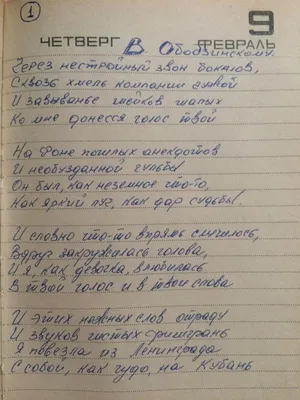 1
9
ЧЕТВЕРГ В. Ободзинскому. ФЕВРАЛЬ
Через нестройный звон бокалов,
Сквозь хмель компании чужой
И завыванье шейков шалых
Ко мне донесся голос твой
На фоне пошлых анекдотов
И необузданной гульбы
Он был, как неземное что-то,
Как яркий луч, как дар судьбы.
И словно что-то впрямь случилось,
Вдруг закружилась голова,
И я, как девочка, влюбилась
В твой голос и в твои слова
И этих нежных слов отраду
И звуков чистых филигрань
Я повезла из Ленинграда
С собой, как чудо, на Кубань